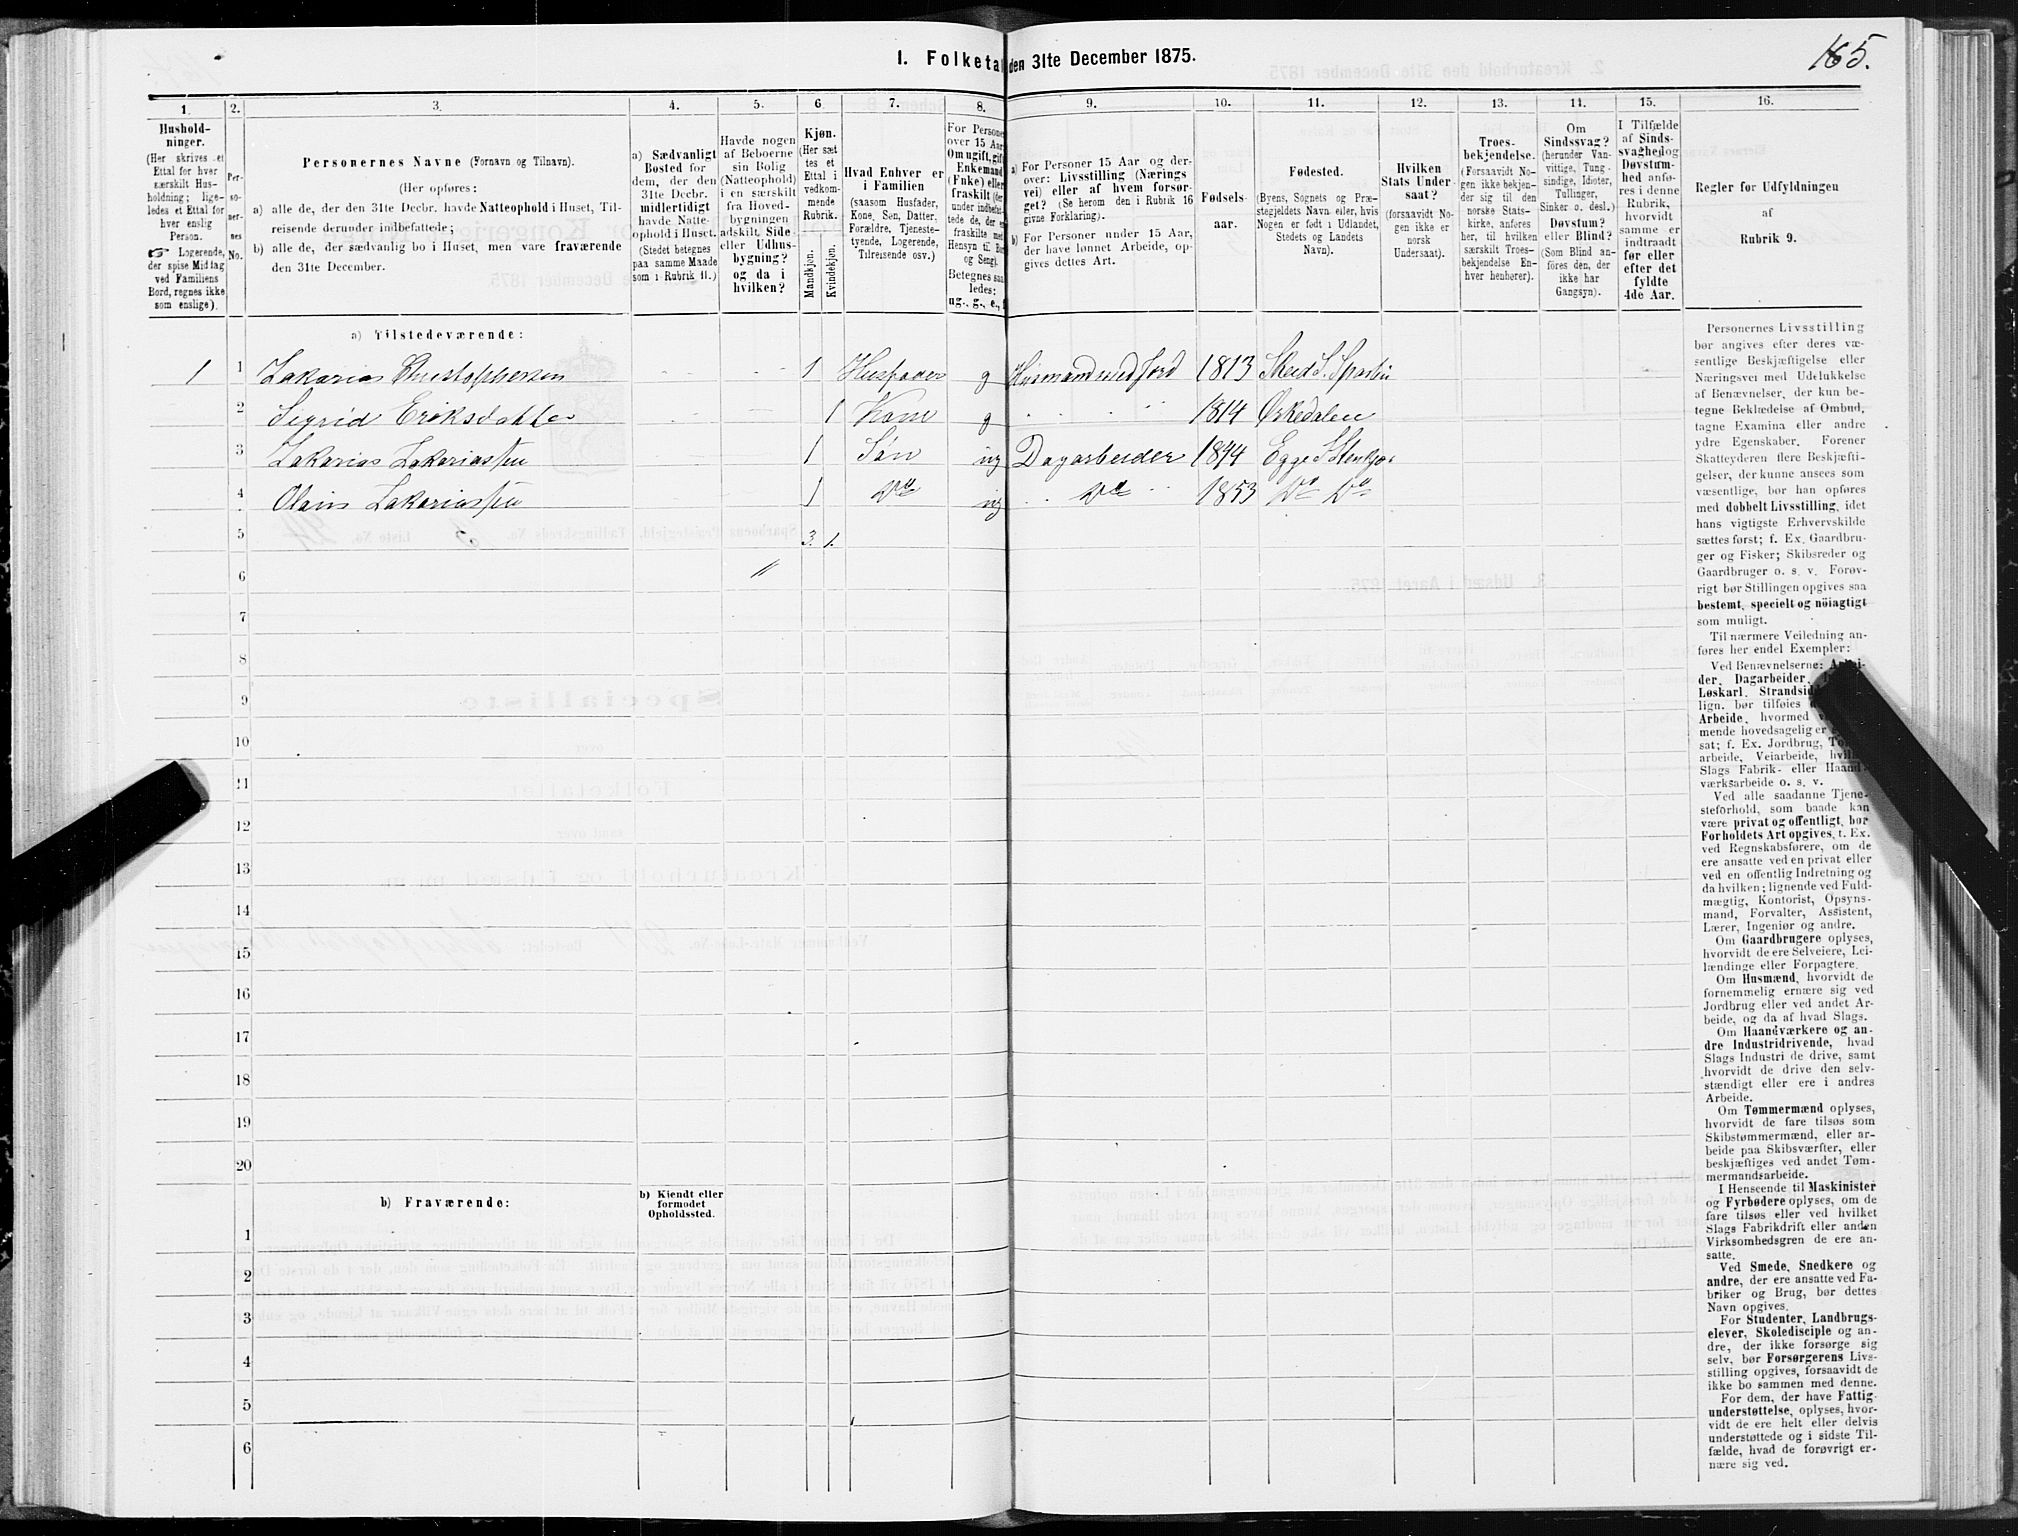 165.
1. Folketal den 31te December 1875.
1. 2. 3. 4. 5. 6. 7. 8. 9. 10. 11. 12. 13. 14. 15. 16.
Hushold-
ninger.
(Her skrives et
Ettal for hver
særskilt Hus-
holdning; lige-
ledes et Ettal for
hver enslig
Person.
☞ Logerende,
der spise Middag
ved Familiens
Bord, regnes ikke
som enslige).
Per-
so-
ner-
nes
No.
Personernes Navne (Fornavn og Tilnavn).
(Her opføres:
a) alle de, der den 31te Decbr. havde Natteophold i Huset, Til-
reisende derunder indbefattede;
b) alle de, der sædvanlig bo i Huset, men vare fraværende
den 31te December.
a) Sædvanligt
Bosted for
dem, der den
31te Decbr.
midlertidigt
havde Natte-
ophold i Huset.
(Stedet betegnes
paa samme Maade
som i Rubrik 11.)
Havde nogen
af Beboerne
sin Bolig
(Natteophold)
i en særskilt
fra Hoved-
bygningen
adskilt Side
eller Udhus-
bygning?
og da i
hvilken?
Kjøn.
(Her sæt
tes et
Ettal i
vedkom-
mende
Rubrik.
Mandkjøn.
Kvindekjøn.
Hvad Enhver er
i Familien
(saasom Husfader,
Kone, Søn, Datter,
Forældre, Tjeneste-
tyende, Logerende,
Tilreisende osv.)
For Persone
over 15 Aar
Om ugift, gift
Enkemand
(Enke) eller
fraskilt (der
under indbefat-
tede de, der er
fraskilte med
Hensyn til Bor
og Seng).
Betegnes saa
ledes:
ug., g., e., f.
a) For Personer 15 Aar og der-
over: Livsstilling (Nærings
vei) eller af hvem forsør-
get? (Se herom den i Rubrik 16
givne Forklaring).
b) For Personer under 15 Aar,
der have lønnet Arbeide, op-
gives dettes Art.
Fødsels-
aar.
Fødested.
(Byens, Sognets og Præ-
stegjeldets Navn eller, hvis
Nogen er født i Udlandet,
Stedets og Landets
Navn).
Hvilken
Stats Under-
saat?
(forsaavidt No-
gen ikke er
norsk
Undersaat).
Troes-
bekjendelse.
(Forsaavidt No-
gen ikke bekjen-
der sig til den
norske Stats-
kirke, anføres
her, til hvilken
særskilt Troes-
bekjendelse En-
hver henhører).
Om
Sindssvag?
(herunder Van-
vittige, Tung-
sindige, Idioter,
Tullinger,
Sinker o. desl.)
Døvstum?
eller Blind?
(Som Blind an-
føres den, der
ikke har
Gangsyn).
I Tilfælde
af Sinds-
svaghed og
Døvstum-
hed anfø-
res i denne
Rubrik,
hvorvidt
samme er
indtraadt
før eller
efter det
fyldte
4de Aar.
Regler for Udfyldningen
af
Rubrik 9.
a) Tilstedeværende:
1 1 Zakarias Christophersen 1 Husfader g Husmand med Jord 1813 Skeid S. Sparbu
2 Sigrid Eriksdatter 1 Kone g 1814 Ørkedalen
3 Zakarias Zakariassen 1 Søn ug Dagarbeider 1844 Egge S Stenkjær
4 Olaus Zakariassen 1 Do ug Do 1853 Do Do
5 3. 1.
6
7
8
9
10
11
12
13
14
15
16
17
18
19
20
b) Fraværende:
b) Kiendt eller
formodet
Opholdssted.
1
2
3
4
5
6
Personernes Livsstilling
bør angives efter deres væ-
sentlige Beskjæftigelse eller
Næringsvei med Udelukkelse
af Benævnelser, der kun be-
tegne Beklædelse af Ombud,
tagne Examina eller andre
ydre Egenskaber. Forener
Skatteyderen flere Beskjæfti-
gelser, der kunne ansees som
væsentlige, bør han opføres
med dobbelt Livsstilling, idet
hans vigtigste Erhvervskilde
sættes først; f. Ex. Gaardbru-
ger og Fisker; Skibsreder og
Gaardbruger o. s. v. Forøv-
rigt bør Stillingen opgives saa
bestemt, specielt og nöiagtigt
som muligt.
Til nærmere Veiledning an-
føres her endel Exempler:
Ved Benævnelserne: Arbei-
der, Dagarbeider,
Løskarl, Strandsid
lign. bør tilføies
Arbeide, hvormed
mende hovedsagelig er
sat; f. Ex. Jordbrug,
arbeide, Veiarbeide,
Slags Fabrik- eller Haand-
værksarbeide o. s. v.
Ved alle saadanne Tjene-
steforhold, som baade kan
være privat og offentligt, bør
Forholdets Art opgives, t. Ex.
ved Regnskabsførere, om de
ere ansatte ved en privat eller
ved en offentlig Indretning og
da hvilken; lignende ved Fuld-
mægtig, Kontorist, Opsyns-
mand, Forvalter, Assistent,
Lærer, Ingeniør og andre.
Om Gaardbrugere oplyses,
hvorvidt de ere Selveiere, Lei-
lændinge eller Forpagtere.
Om Husmænd, hvorvidt de
fornemmelig ernære sig ved
Jordbrug eller ved andet Ar-
beide, og da af hvad Slags.
Om Haandværkere og an-
dre Industridrivende, hvad
Slags Industri de drive, samt
hvorvidt de drive den selv-
stændigt eller ere i andres
Arbeide.
Om Tømmermænd oplyses,
hvorvidt de fare tilsøs som
Skibstømmermænd, eller ar-
beide paa Skibsværfter, eller
beskjæftiges ved andet Tøm-
mermandsarbeide.
I Henseende til Maskinister
og Fyrbødere oplyses, om de
fare tilsøs eller ved hvilket
Slags Fabrikdrift eller anden
Virksomhedsgren de ere an-
satte.
Ved Smede, Snedkere og
andre, der ere ansatte ved Fa-
briker og Brug, bør dettes
Navn opgives.
For Studenter, Landbrugs-
elever, Skoledisciple og an-
dre, der ikke forsørge sig
selv, bør Forsørgerens Livs-
stilling opgives, forsaavidt de
ikke bo sammen med denne.
For dem, der have Fattig-
understøttelse, oplyses, hvor-
vidt de ere helt eller delvis
understøttede og i sidste Til-
fælde, hvad de forøvrigt er-
nære sig ved.